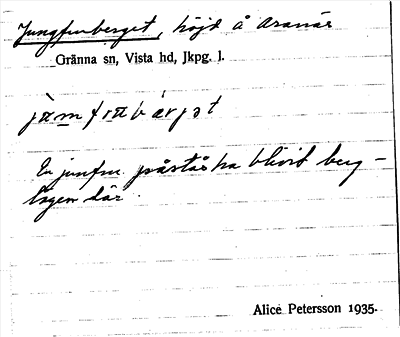 Jungfruberget, höjd å Aranäs
Gränna sn, Vista hd, Jkpg. l.
En jungfru påstås ha blivit berg-
tagen där.
Alice Petersson 1935.